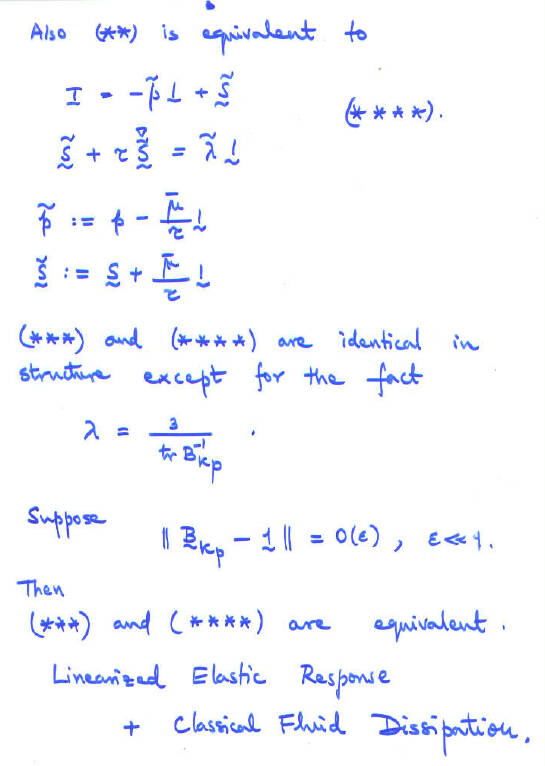 Also (**) is equivalent to
I = -p̃ 1 + S̃
(****).
S̃ + τ S̃^∇ = λ̃ 1
p̃ := p - μ̄/τ 1
S̃ := S + μ̄/τ 1
(***) and (****) are identical in
structure except for the fact
λ = 3 / tr B⁻¹κp .
Suppose
‖ Bκp - 1 ‖ = O(ε) , ε ≪ 1.
Then
(***) and (****) are equivalent .
Linearized Elastic Response
+ Classical Fluid Dissipation.